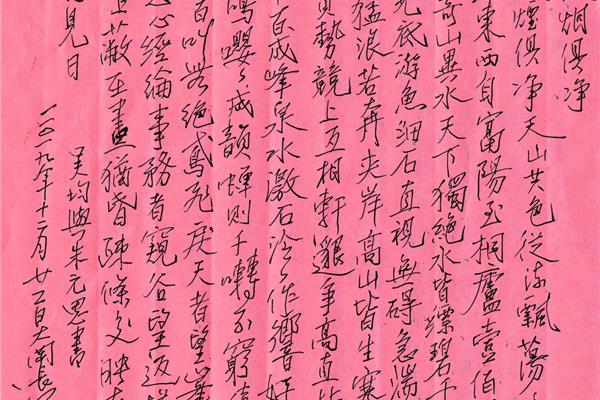 烟俱净
煙俱净天山共色從流飄蕩
東西自富陽至桐廬壹佰
奇山異水天下獨绝水皆縹碧千
見底游魚細石直視無碍急湍
猛浪若奔夹岸高山皆生寒
負勢競上互相軒邈争高直指
百成峰泉水激石泠々作響好
鳴嚶々成韻蟬則千囀不窮猿
百叫无绝鳶飛戾天者望峯
息心經綸事務者窺谷忘返
上蔽在晝猶昏疎條交映有
見日
吴均與朱元思書
二〇一九年十二月廿二日